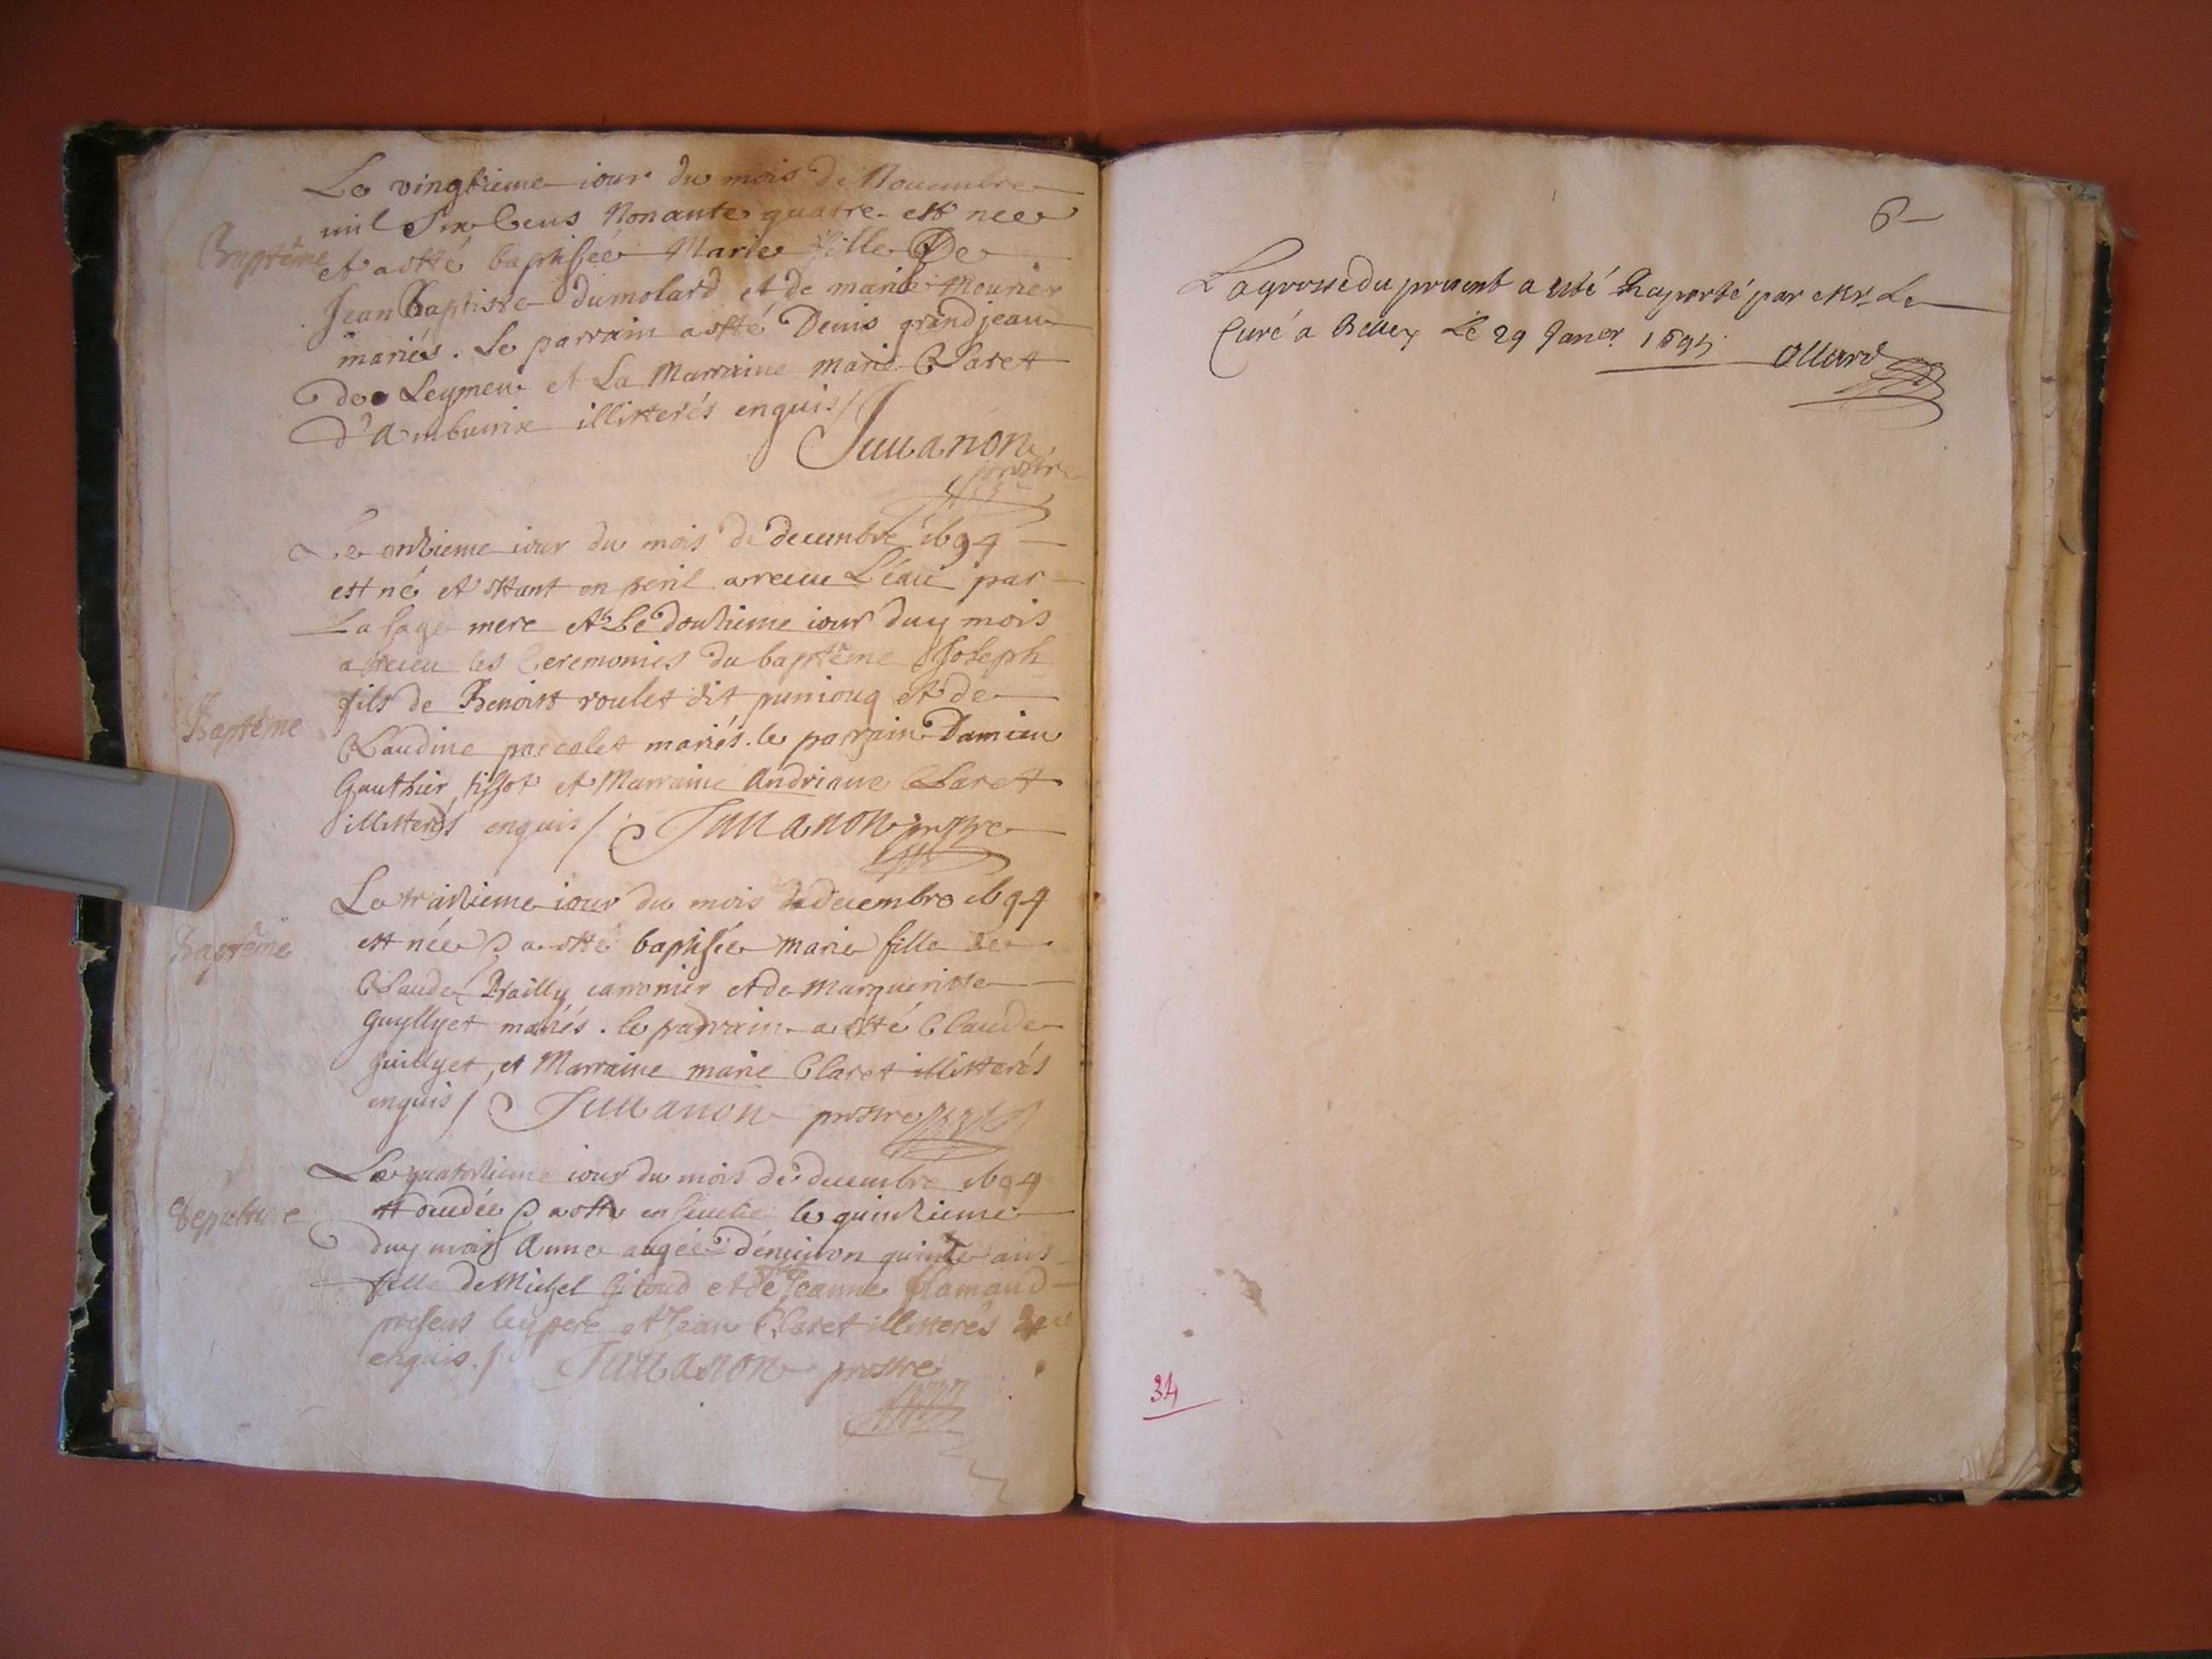 Le vingtieme iour du mois de Nouembre
mil Six Cens Nonante quatre est nee
Baptême
et a esté baptisée Marie fille De
Jean Baptiste dumolard et de marie Mounier
mariés. Le parrain a esté Denis grandjean
de Leymen et La Marraine marie Claret
d'Ambuirix illitterés enquis /
Juuanon
prostre
Le onzieme iour du mois de decembre 1694
est né et estant en peril a receu L'eau par
La sage mere et Le douzieme iour duy mois
a receu les Ceremonies du baptême Joseph
fils de Benoist roulet dit puniouq et de
Baptême
Claudine pascalet mariés. le parrain Damian
Gauthier tissot et Marraine Andriane Claret
illitterés enquis / Juuanon prostre
Le traizieme iour du mois de decembre 1694
Baptême
est née & a esté baptisée marie fille de
Claude Brailly canonier et de Margueritte
Guyllyet mariés. le parrain a esté Claude
Guillyet, et Marraine marie Claret illitterés
enquis / Juuanon prostre
Le quatorzieme iour du mois de decembre 1694
Sepulture
est decedée & a esté enseuelie le quinzieme
duy mois Anne augée d'enuiron quinze ans
fille de Michel Giroud et de Jeanne flamand
presens le pere et Jean Claret illitterés
enquis. / Juuanon prostre
6
La grosse du present a esté Raporté par Mr. Le
Curé a Belley Le 29 Janer. 1695
Ollard
34